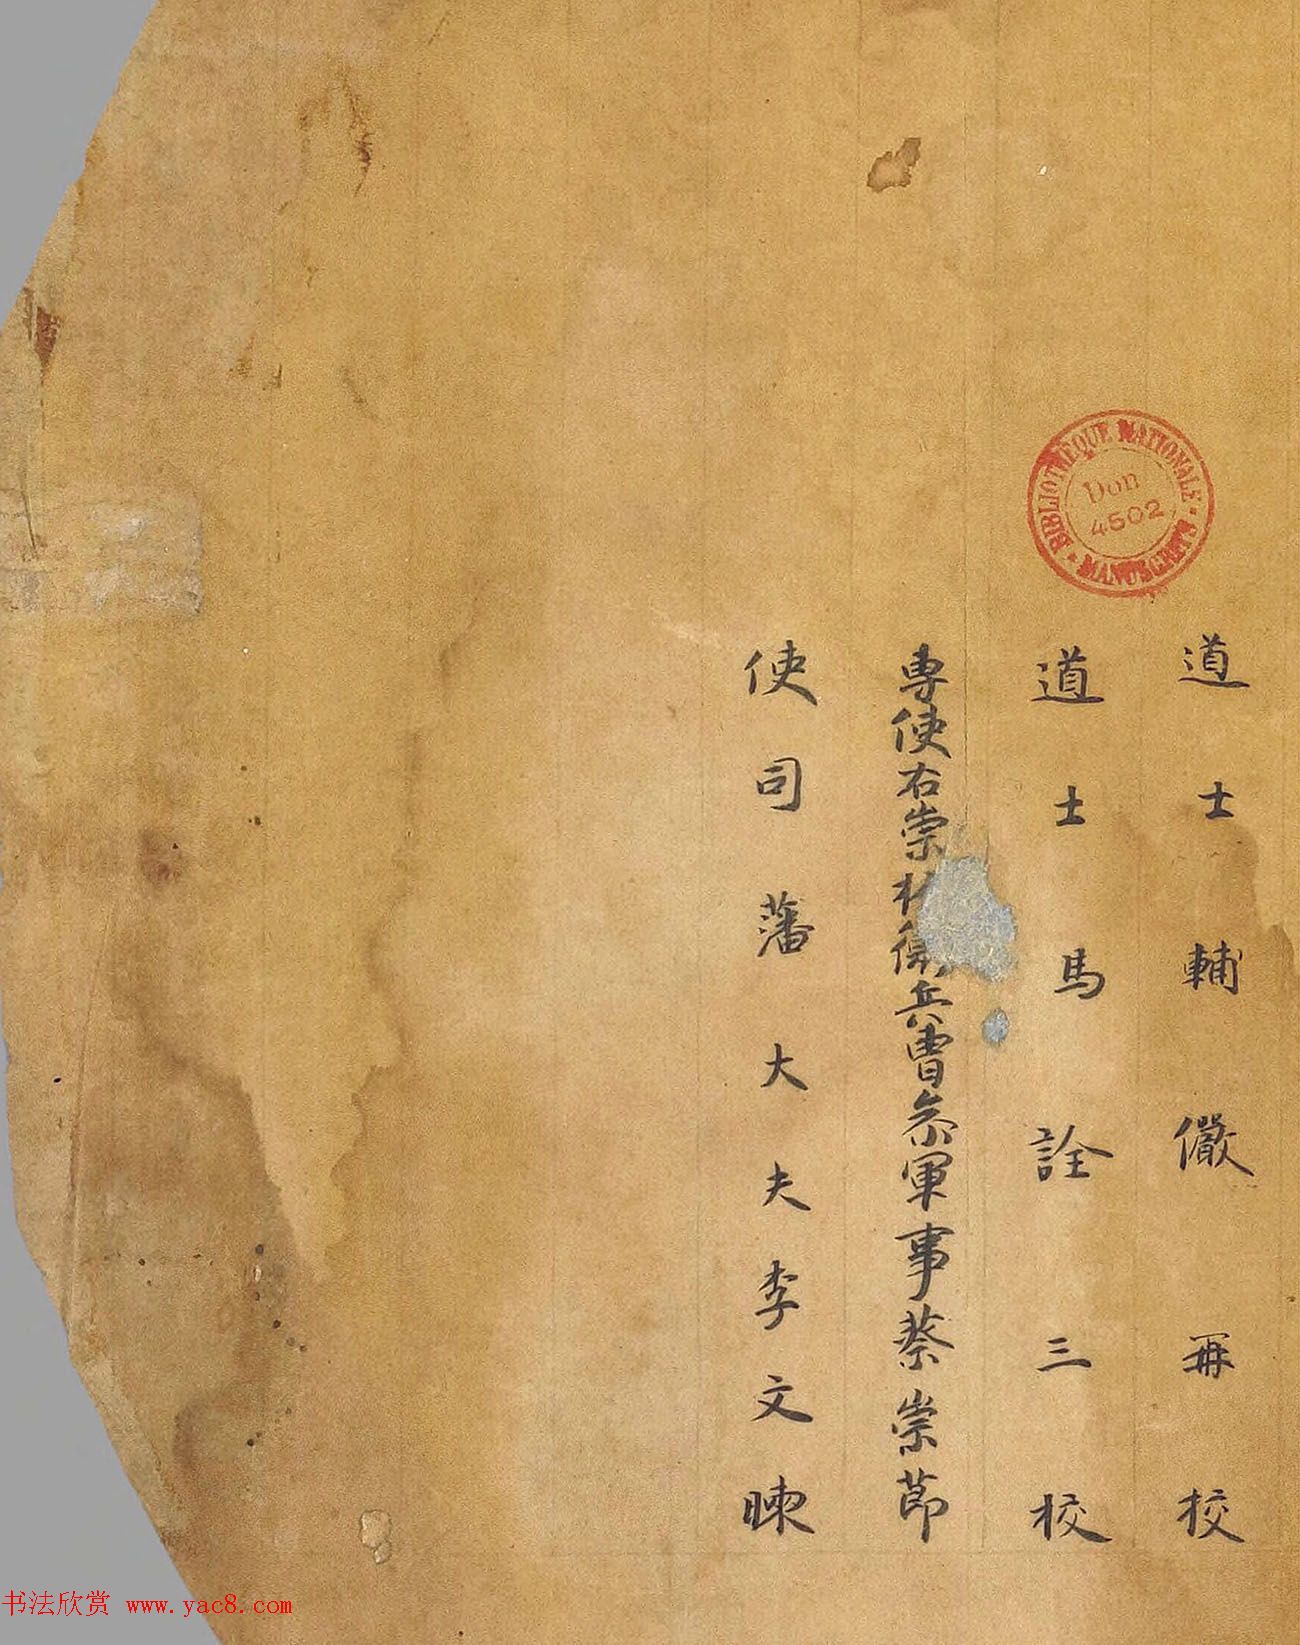 道士輔儼再校
道士馬詮三校
專使右崇衛兵曹叅軍事蔡崇節
使司藩大夫李文暕
BIBLIOTHÈQUE NATIONALE
Don
4502
MANUSCRITS
书法欣赏 www.yac8.com